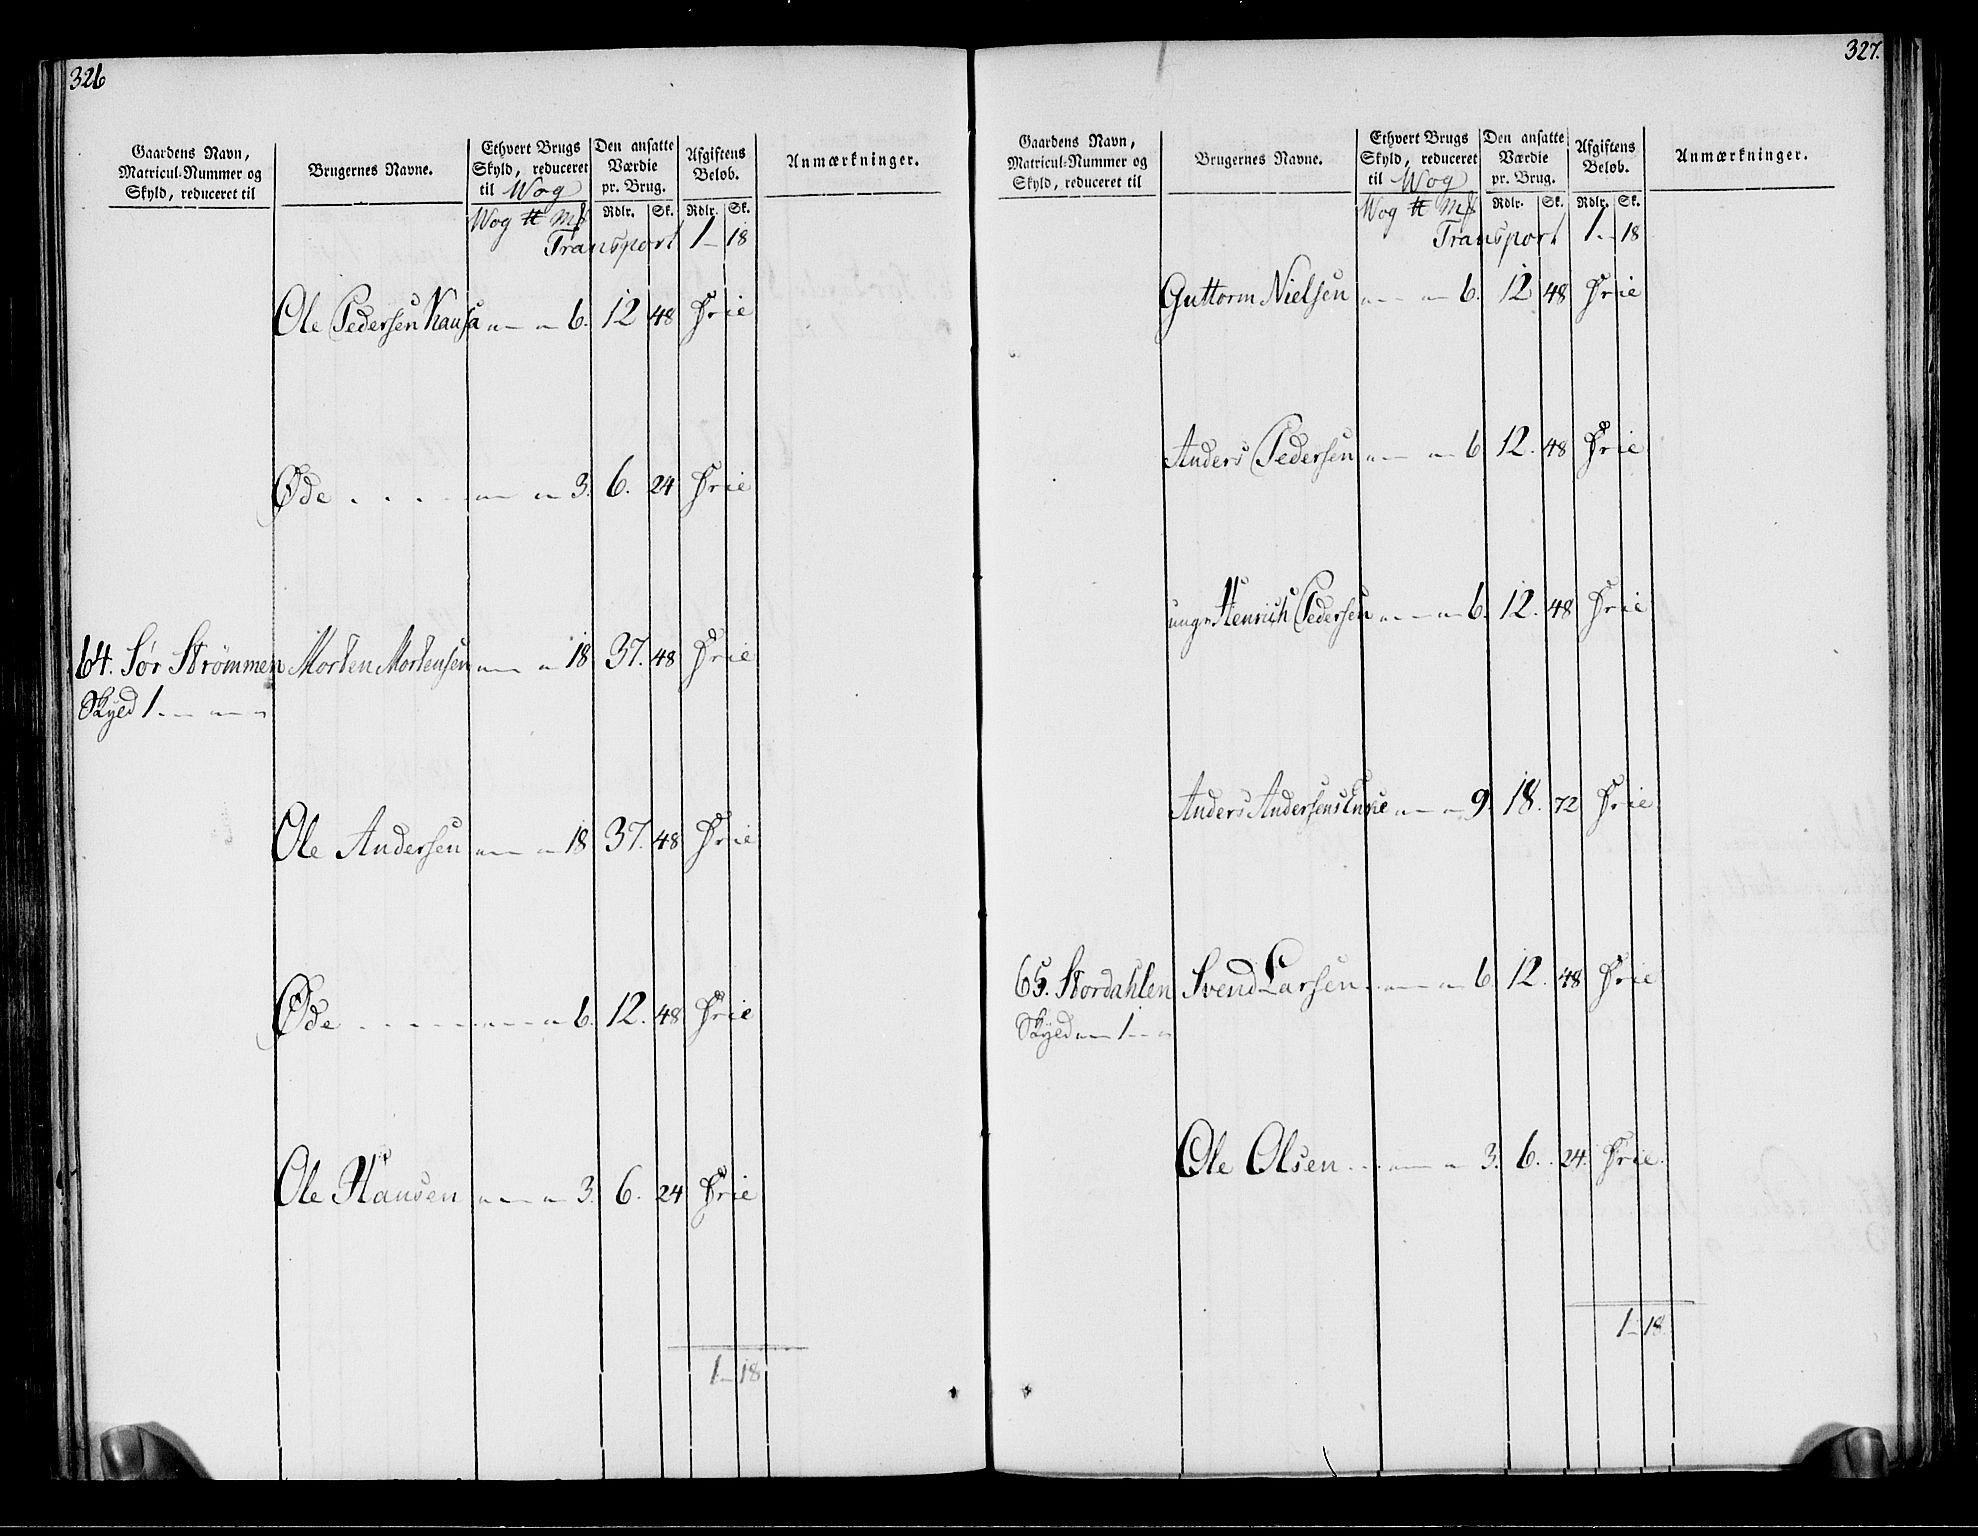 326
Gaardens Navn, Matricul-Nummer og Skyld, reduceret til | Brugernes Navne. | Ethvert Brugs Skyld, reduceret til Wog | Den ansatte Værdie pr. Brug. | Afgiftens Beløb. | Anmærkninger.
Wog ℔ Mk | Rdlr. | Sk. | Rdlr. | Sk.
Transport 1 – 18
Ole Pedersen „ – „ 6. 12 48 Frie
Øde . . . . „ – „ 3. 6. 24 Frie
64. Sør Strømmen Morten Mortensen „ – „ 18 37. 48 Frie
Skyld 1. – „ – „
Ole Andersen „ – „ 18 37. 48 Frie
Øde . . . . . „ – „ 6. 12. 48 Frie
Ole Hansen „ – „ 3. 6. 24 Frie
1 – 18
327.
Gaardens Navn, Matricul-Nummer og Skyld, reduceret til | Brugernes Navne. | Ethvert Brugs Skyld, reduceret til Wog | Den ansatte Værdie pr. Brug. | Afgiftens Beløb. | Anmærkninger.
Wog ℔ Mk | Rdlr. | Sk. | Rdlr. | Sk.
Transport 1. – 18
Guttorm Nielsen „ – „ 6. 12 48 Frie
Anders Pedersen „ – „ 6 12. 48 Frie
unge Henrich Pedersen „ – „ 6. 12. 48 Frie
Anders Andersens Enke „ – „ 9. 18. 72 Frie
65. Stordahlen Svend Larsen . „ – „ 6. 12. 48 Frie
Skyld „ – 1 – „
Ole Olsen . . „ – „ 3. 6. 24. Frie.
1 – 18.